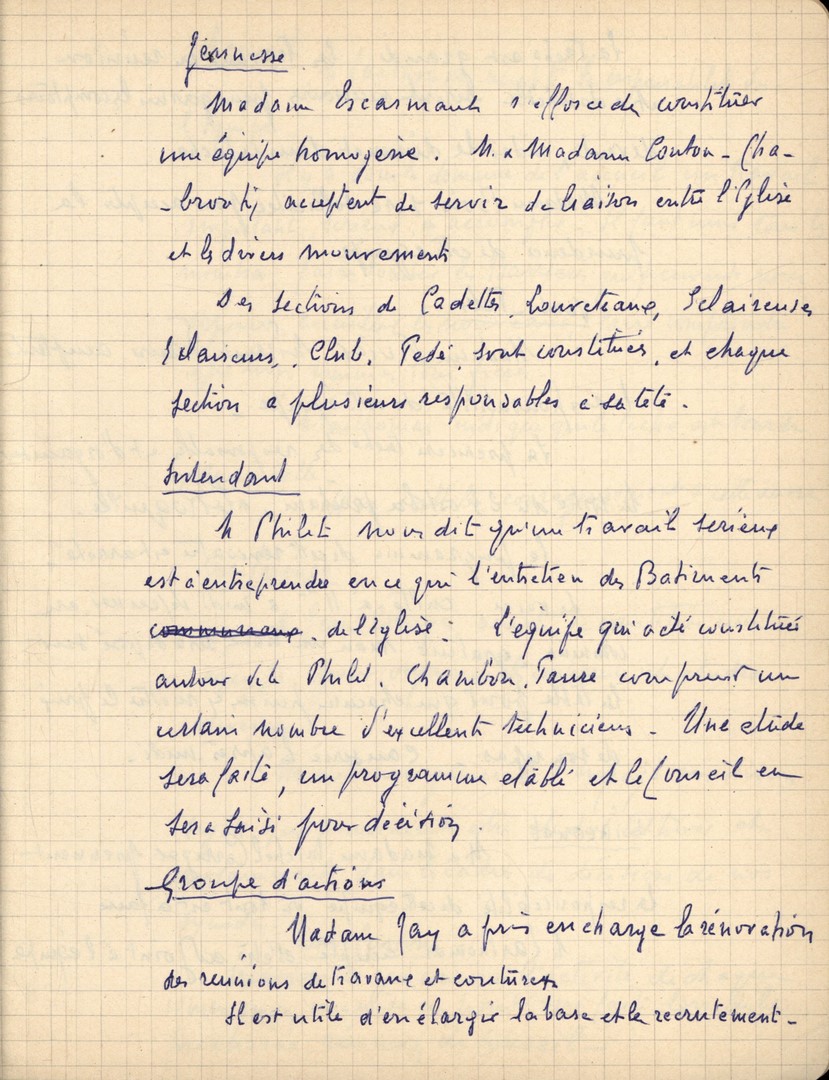 Jeunesse
Madame Escarmant s'efforce de constituer
une équipe homogène. M. & Madame Couton-Cha-
-brouty acceptent de servir de liaison entre l'Eglise
et les divers mouvements
Des sections de Cadettes, Louveteaux, Eclaireuses
Eclaireurs, Club, sont constitués, et chaque
section a plusieurs responsables à sa tête.
Intendant
M Philit nous dit qu'un travail sérieux
est à entreprendre en ce qui l'entretien des Batiments
communaux de l'Eglise. L'équipe qui a été constituée
autour de M Philit, Chambon, Faure comprend un
certain nombre d'excellents techniciens. Une etude
sera faite, un programme etabli et le Conseil en
sera saisi pour décision.
Groupe d'actions
Madame Jay a pris en charge la rénovation
des reunions de travaux et coutures
Il est utile d'en élargir la base et le recrutement.